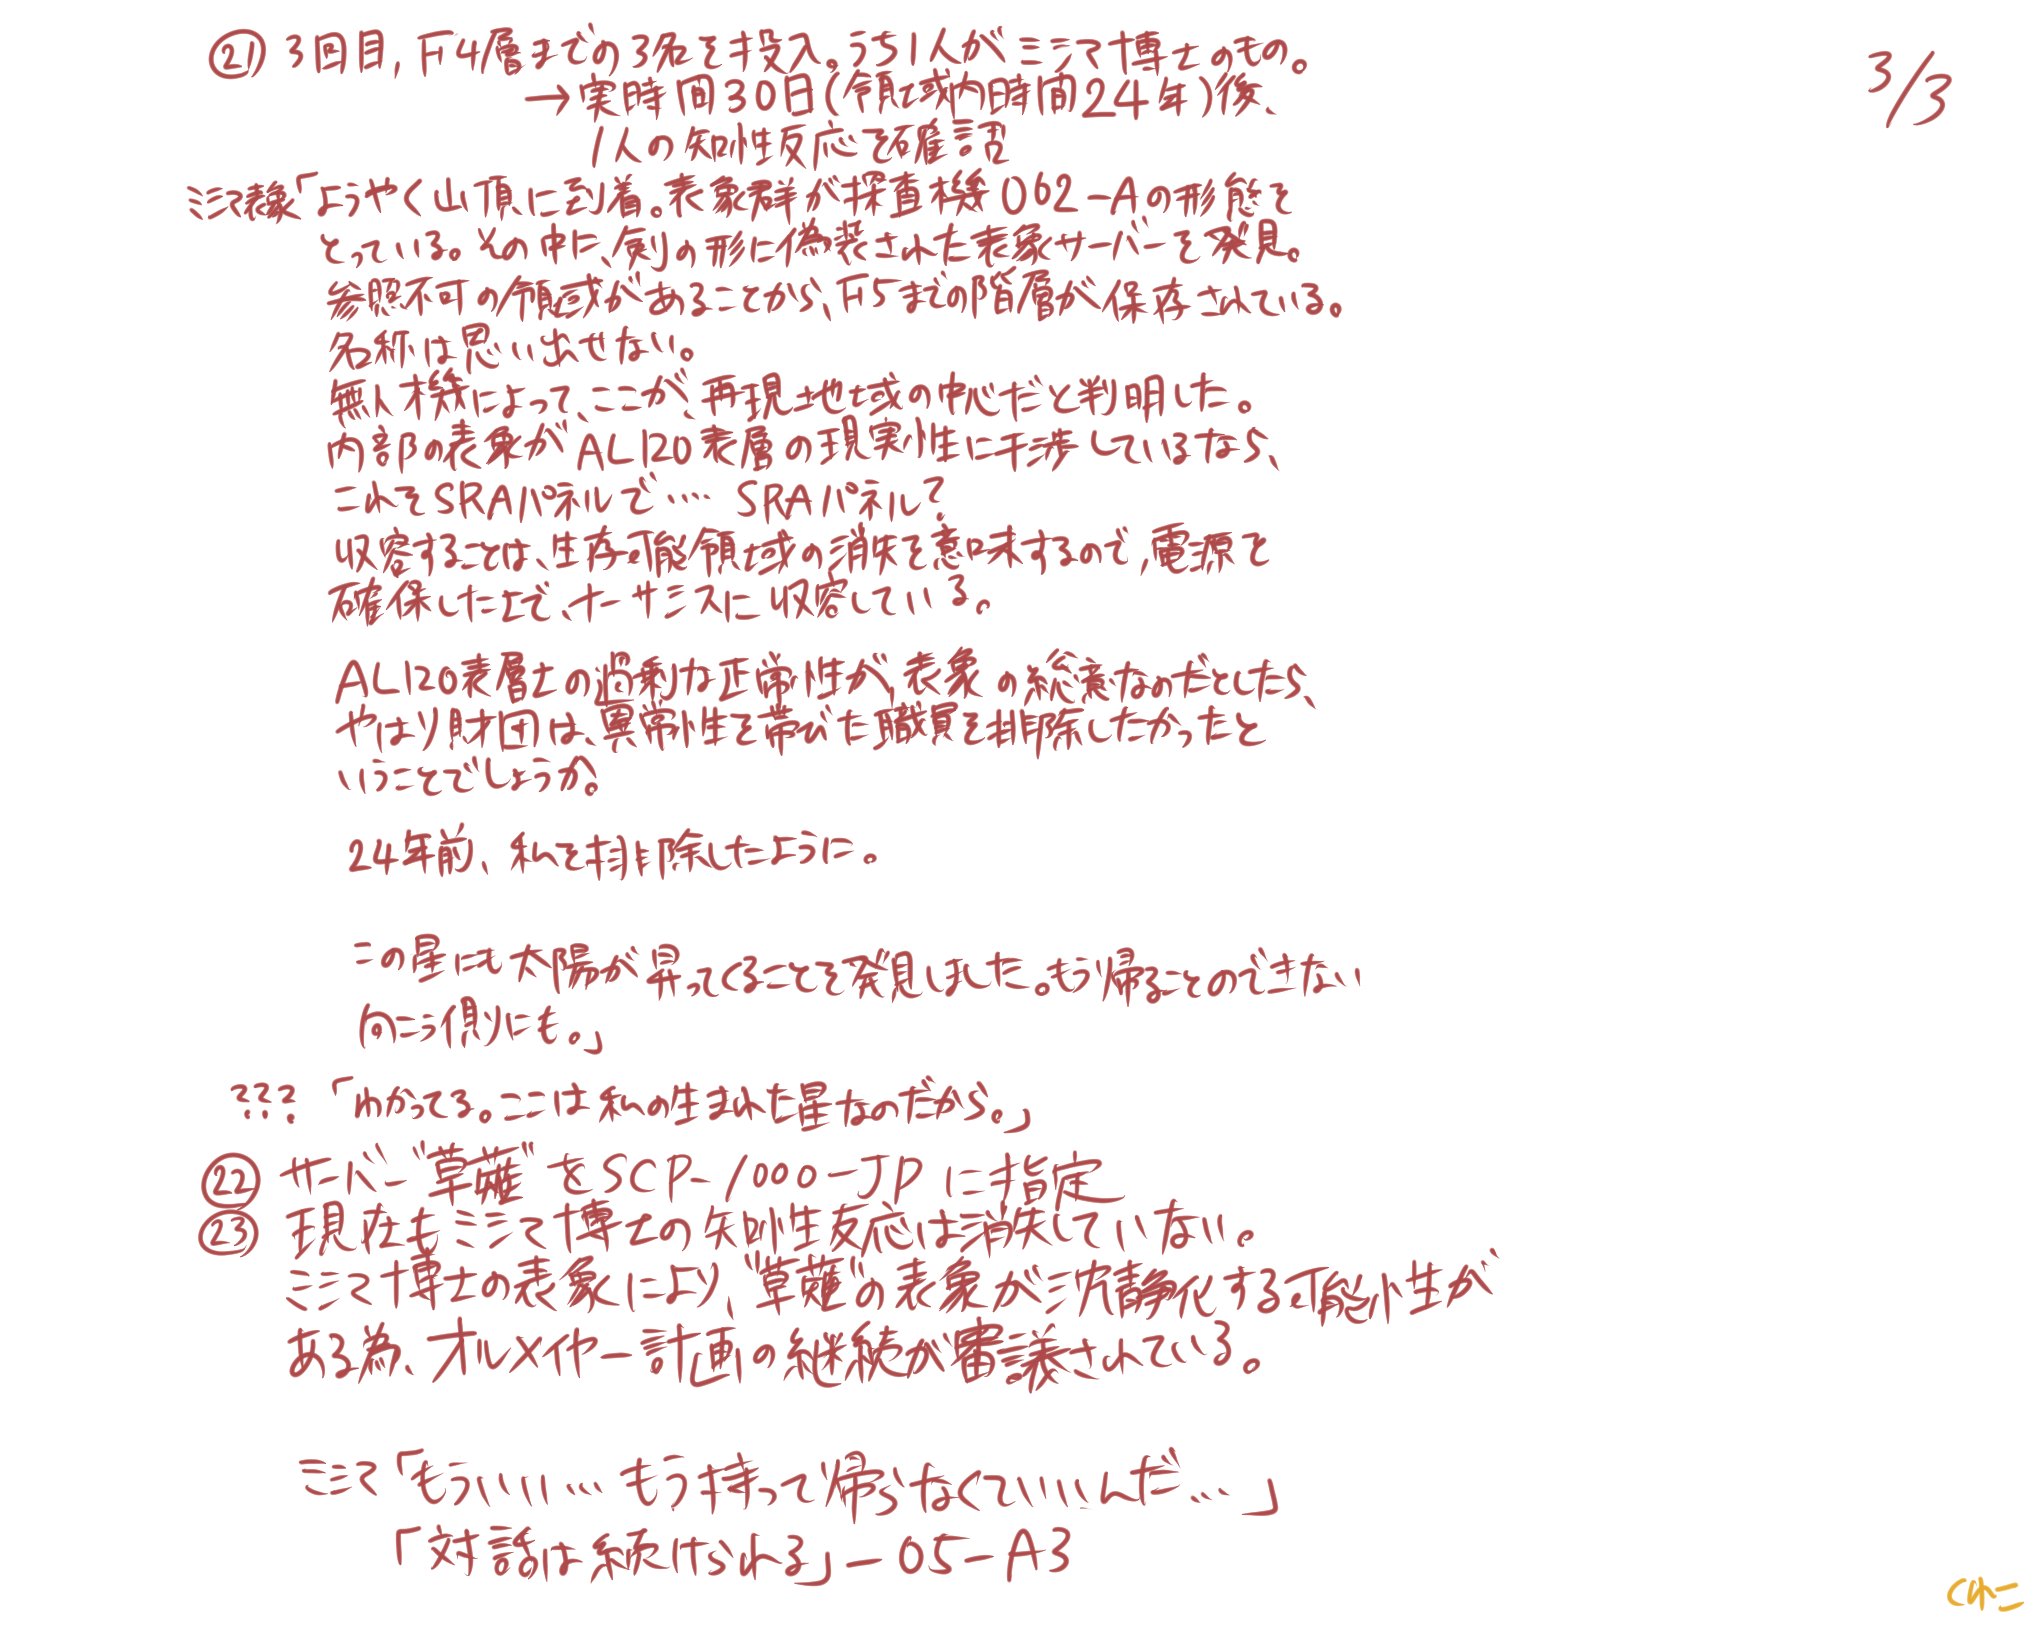 3/3
㉑ 3回目、F4層までの3名を投入。うち1人がミシマ博士のもの。
→実時間30日(領域内時間24年)後、
1人の知性反応を確認
ミシマ表象「ようやく山頂に到着。表象群が探査機062-Aの形態を
とっている。その中に、剣の形に偽装された表象サーバーを発見。
参照不可の領域があることから、F5までの階層が保存されている。
名称は思い出せない。
無人機によって、ここが、再現地域の中心だと判明した。
内部の表象がAL120表層の現実性に干渉しているなら、
これをSRAパネルで… SRAパネル?
収容することは、生存可能領域の消失を意味するので、電源を
確保した上で、ナーサシスに収容している。
AL120表層土の過剰な正常性が、表象の総意なのだとしたら、
やはり財団は、異常性を帯びた職員を排除したかったと
いうことでしょうか。
24年前、私を排除したように。
この星にも太陽が昇ってくることを発見しました。もう帰ることのできない
向こう側にも。」
???「わかってる。ここは私の生まれた星なのだから。」
㉒ サーバー"草薙"をSCP-1000-JPに指定
㉓ 現在もミシマ博士の知性反応は消失していない。
ミシマ博士の表象により、"草薙"の表象が沈静化する可能性が
ある為、オルメイヤー計画の継続が審議されている。
ミシマ「もういい… もう持って帰らなくていいんだ…」
「対話は続けられる」-O5-A3
くれこ